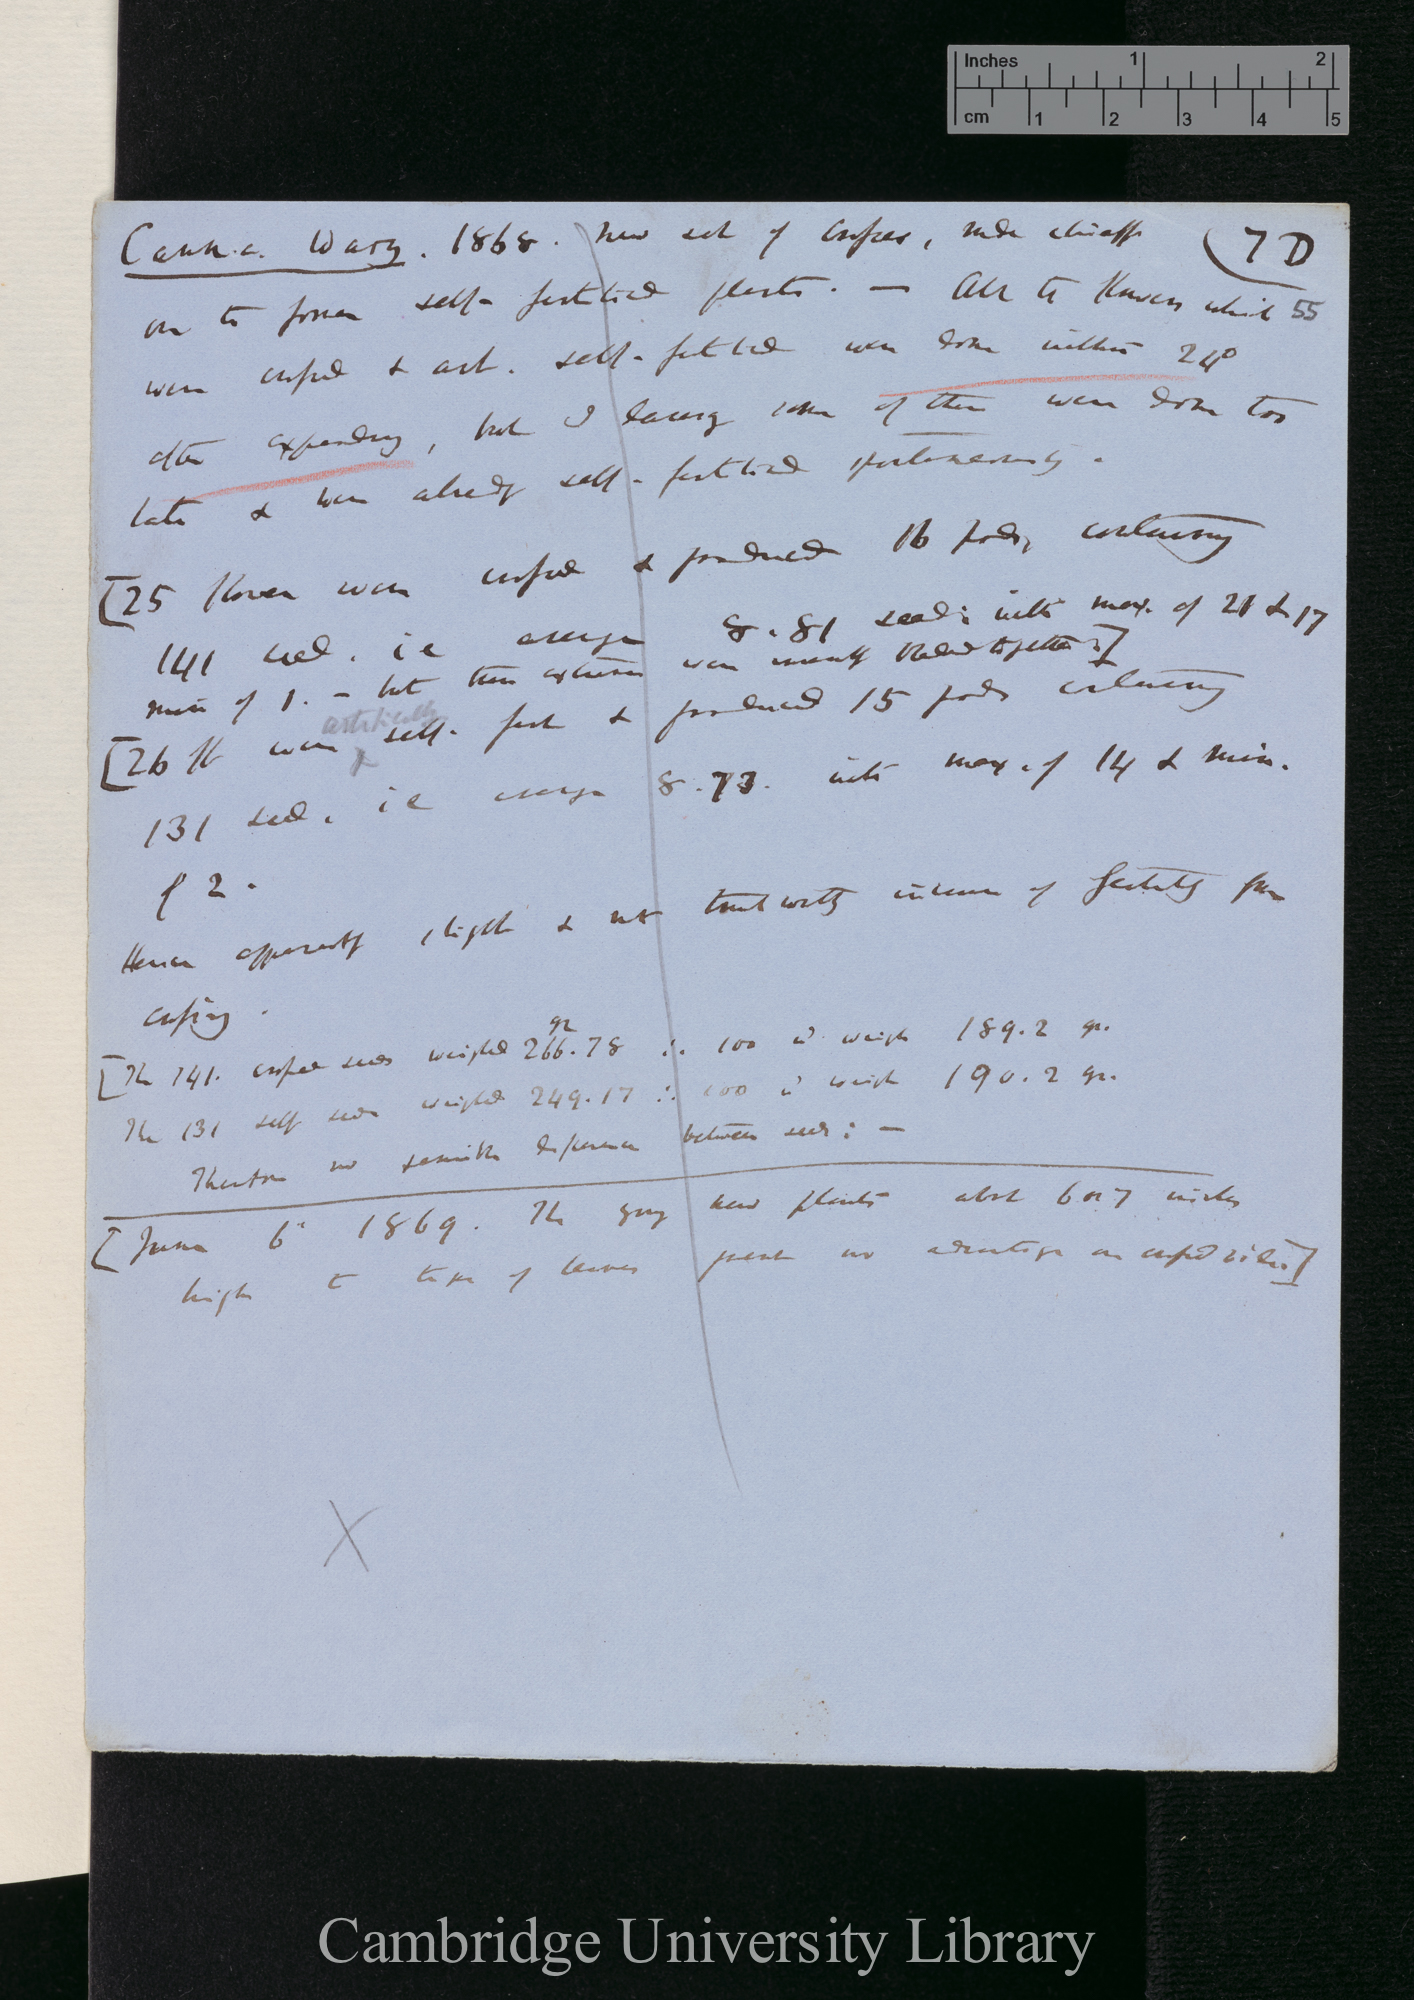 Inches 1 2
cm 1 2 3 4 5
Canna Warz. 1868. New set of crosses, made chiefly (7 D
on the former self-fertilised plants. — All the flowers which 55
were crossed & art. self-fertilised were done within 24°
after expanding, but I daresay some of them were done too
late & were already self-fertilised spontaneously.
[25 flowers were crossed & produced 16 pods, containing
141 seed. i e average 8.81 seeds with max. of 21 & 17
min of 1. – but these were together]
artificially
[26 fl were self-fert & produced 15 pods containing
131 seed, i e average 8.73. with max. of 14 & min.
of 2.
Hence apparently slight & not trustworthy increase of fertility from
crossing.
gr
[The 141. crossed seeds weighed 266.78 ∴ 100 wd weigh 189.2 gr.
The 131 self seeds weighed 249.17 ∴ 100 wd weigh 190.2 gr.
Therefore no sensible difference between seeds: —
[June 6th 1869. The young new plants about 6 or 7 inches
high to tips of leaves present no advantage on crossed side:]
X
Cambridge University Library